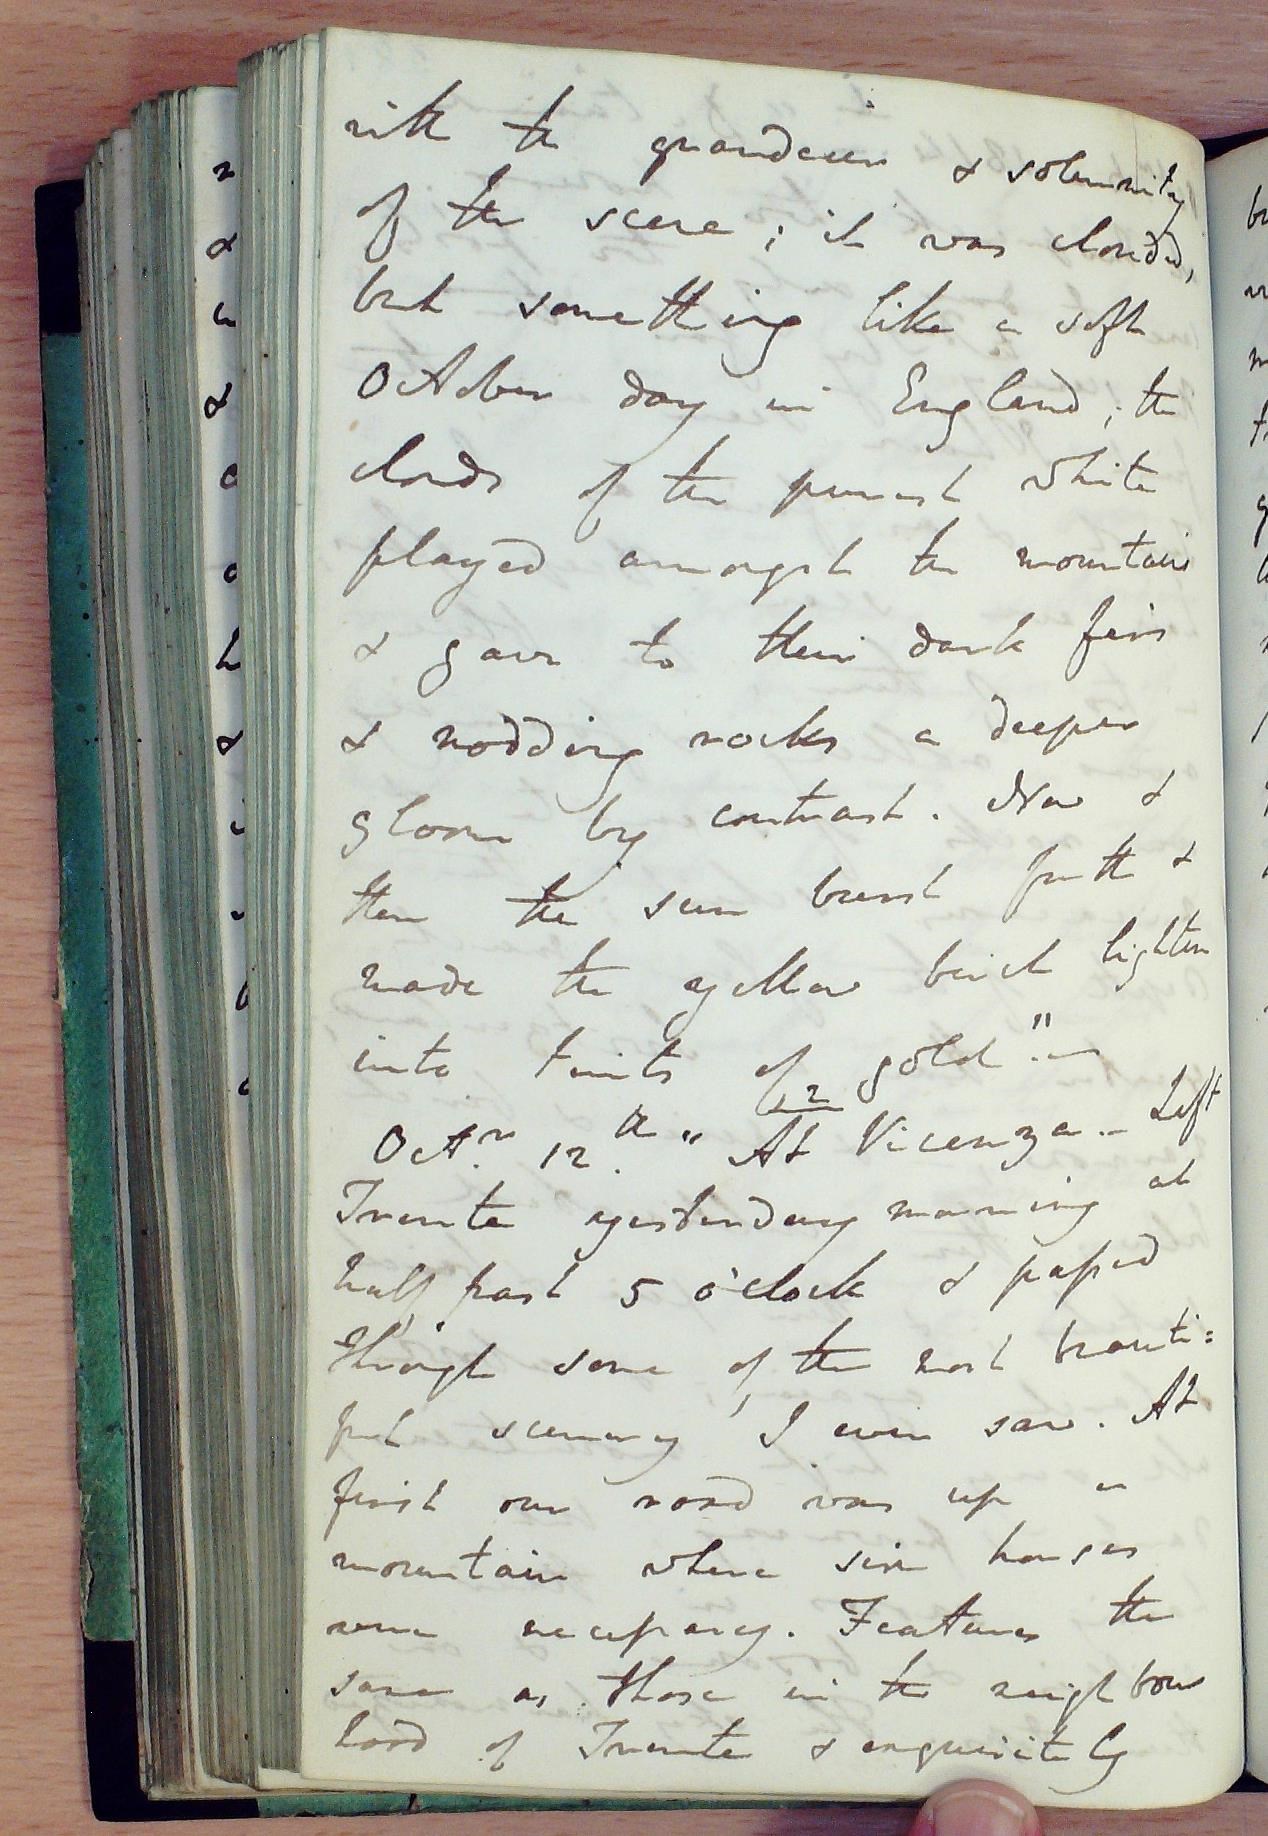 with the grandeur & solemnity
of the scene; it was clouded,
but something like a soft
October day in England; the
clouds of the purest white
played amongst the mountains
& gave to their dark firs
& nodding rocks a deeper
gloom by contrast. Now &
then the sun burst forth &
made the yellow birch lighten
into tints of gold".—
12
Octr. 12th. " At Vicenza.— Left
Trente yesterday morning at
half past 5 o'clock & passed
through some of the most beauti=
ful scenery I ever saw. At
first our road was up a
mountain where six horses
were necessary. Features the
same as those in the neighbour
hood of Trente & exquisitely